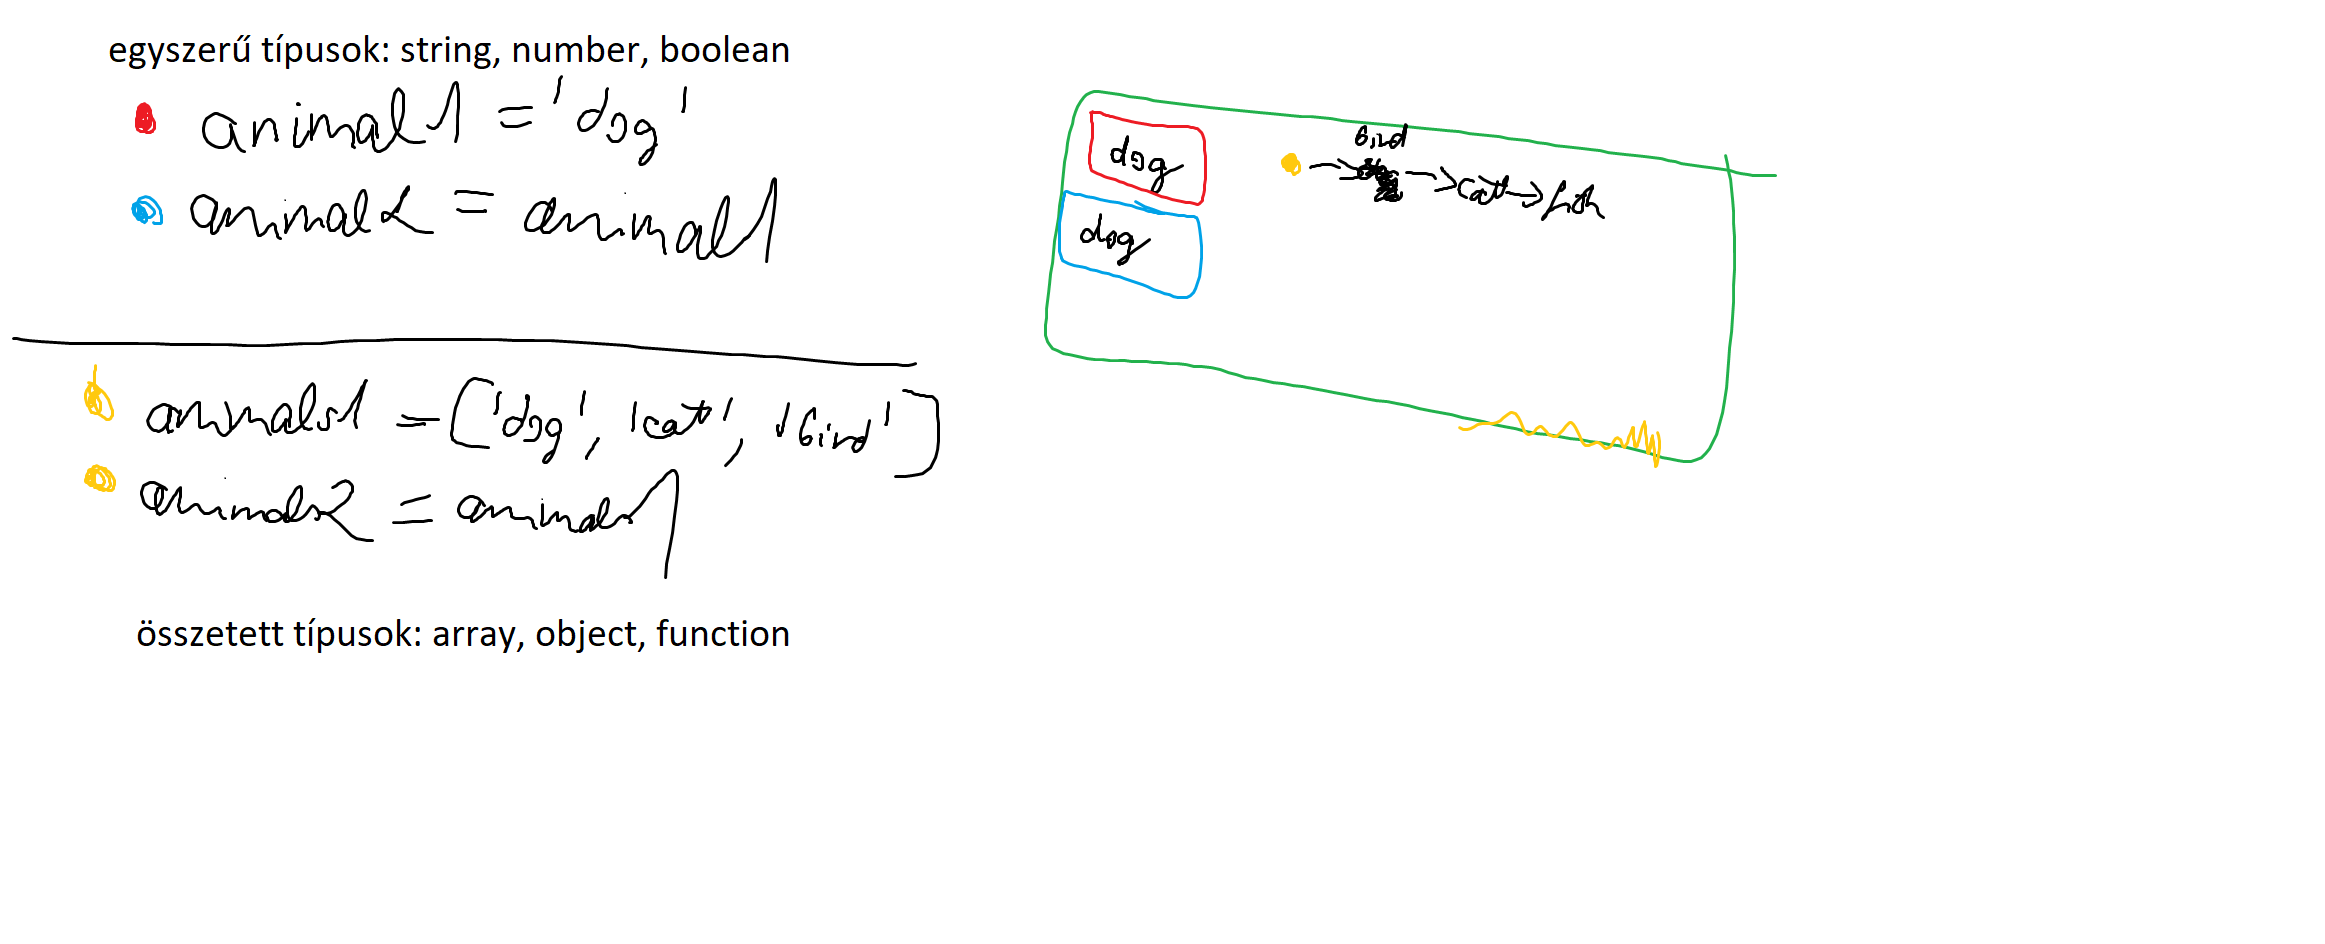 egyszerű típusok: string, number, boolean
animal1 = 'dog'
animal2 = animal1
animals1 = ['dog', 'cat', 'bird']
animals2 = animals1
összetett típusok: array, object, function
dog
dog
bird
cat fish